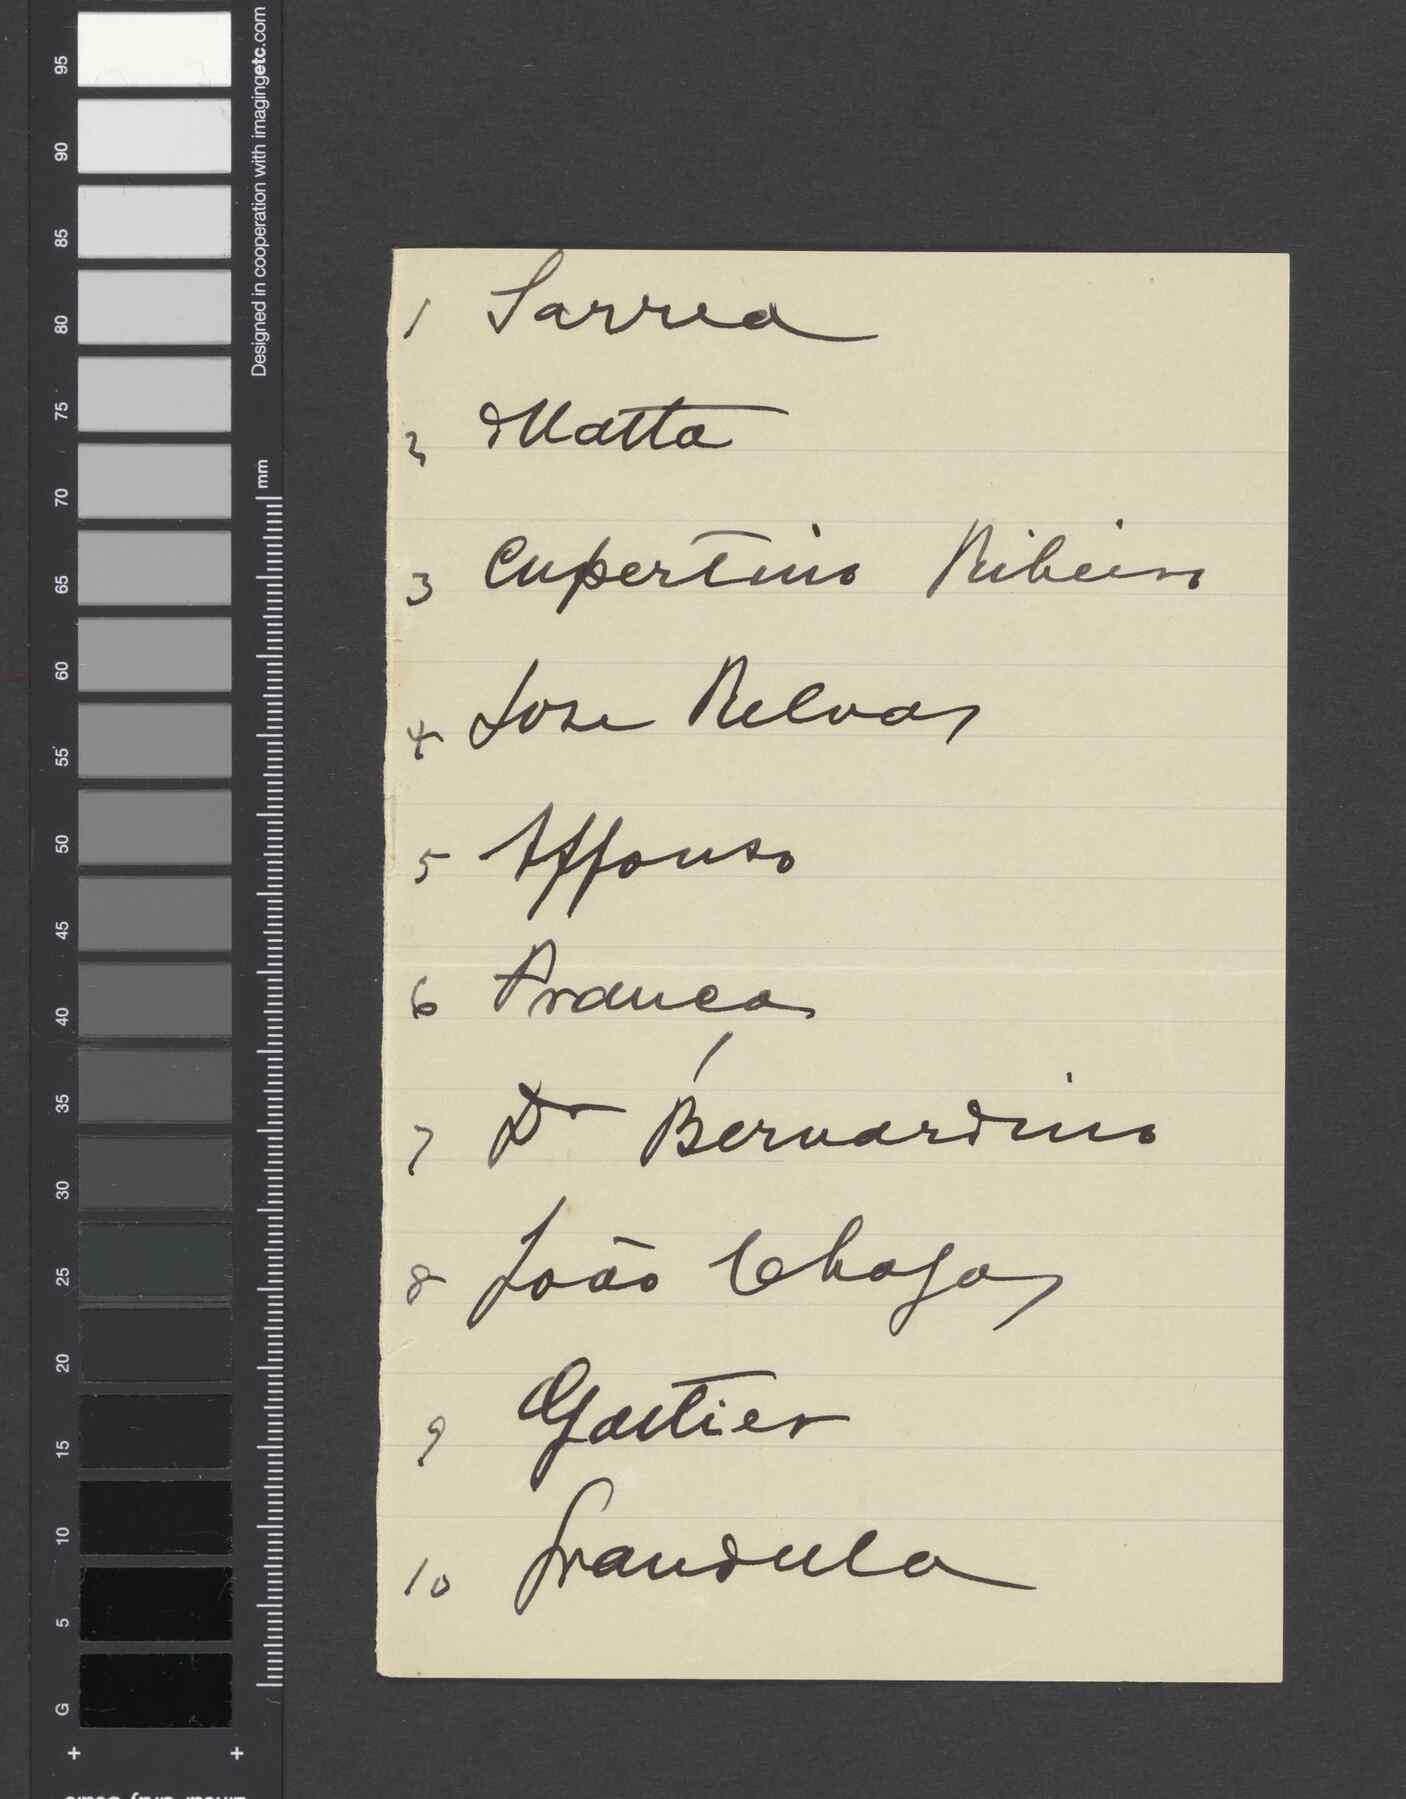 95
90
85
80
75
70
65
60
55
50
45
40
35
30
25
20
15
10
5
G
Designed in cooperation with imagingetc.com
mm
1 Sarrea
2 Matta
3 Cupertino Ribeiro
4 Jose Relvas
5 Affonso
6 Franca
7 Dr Bernardino
8 João Chagas
9 Gastier
10 Grandula